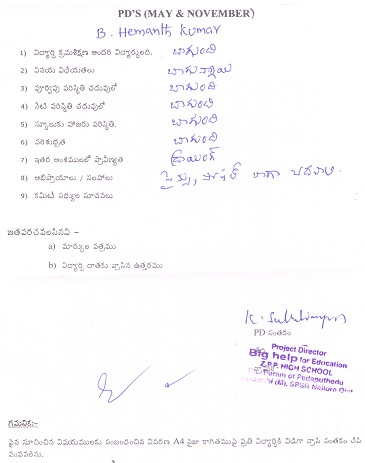 PD'S (MAY & NOVEMBER)
B. Hemanth Kumar
1) విద్యార్థి క్రమశిక్షణ అందరి విద్యార్థులది. బాగుంది
2) వినయ విధేయతలు బాగున్నాయి
3) పూర్వపు పరిస్థితి చదువులో బాగుంది
4) నేటి పరిస్థితి చదువులో బాగుంది
5) స్కూలుకు హాజరు పరిస్థితి. బాగుంది
6) పరిశుభ్రత బాగుంది
7) ఇతర అంశములలో ప్రావీణ్యత డ్రాయింగ్
8) అభిప్రాయాలు / సలహాలు సైన్సు, సోషల్ బాగా చదవాలి.
9) కమిటీ సభ్యుల సూచనలు
జతపరచవలసినవి :-
a) మార్కుల పత్రము
b) విద్యార్థి దాతకు వ్రాసిన ఉత్తరము
PD సంతకం
Project Director
Big help for Education
Z.P.P. HIGH SCHOOL
Puram of Pedaputhedu
(M), SPSR Nellore Dist
గమనిక:-
పైన సూచించిన విషయములకు సంబంధించిన వివరణ A4 సైజు కాగితముపై ప్రతి విద్యార్థికి విడిగా వ్రాసి సంతకం చేసి
పంపవలెను.